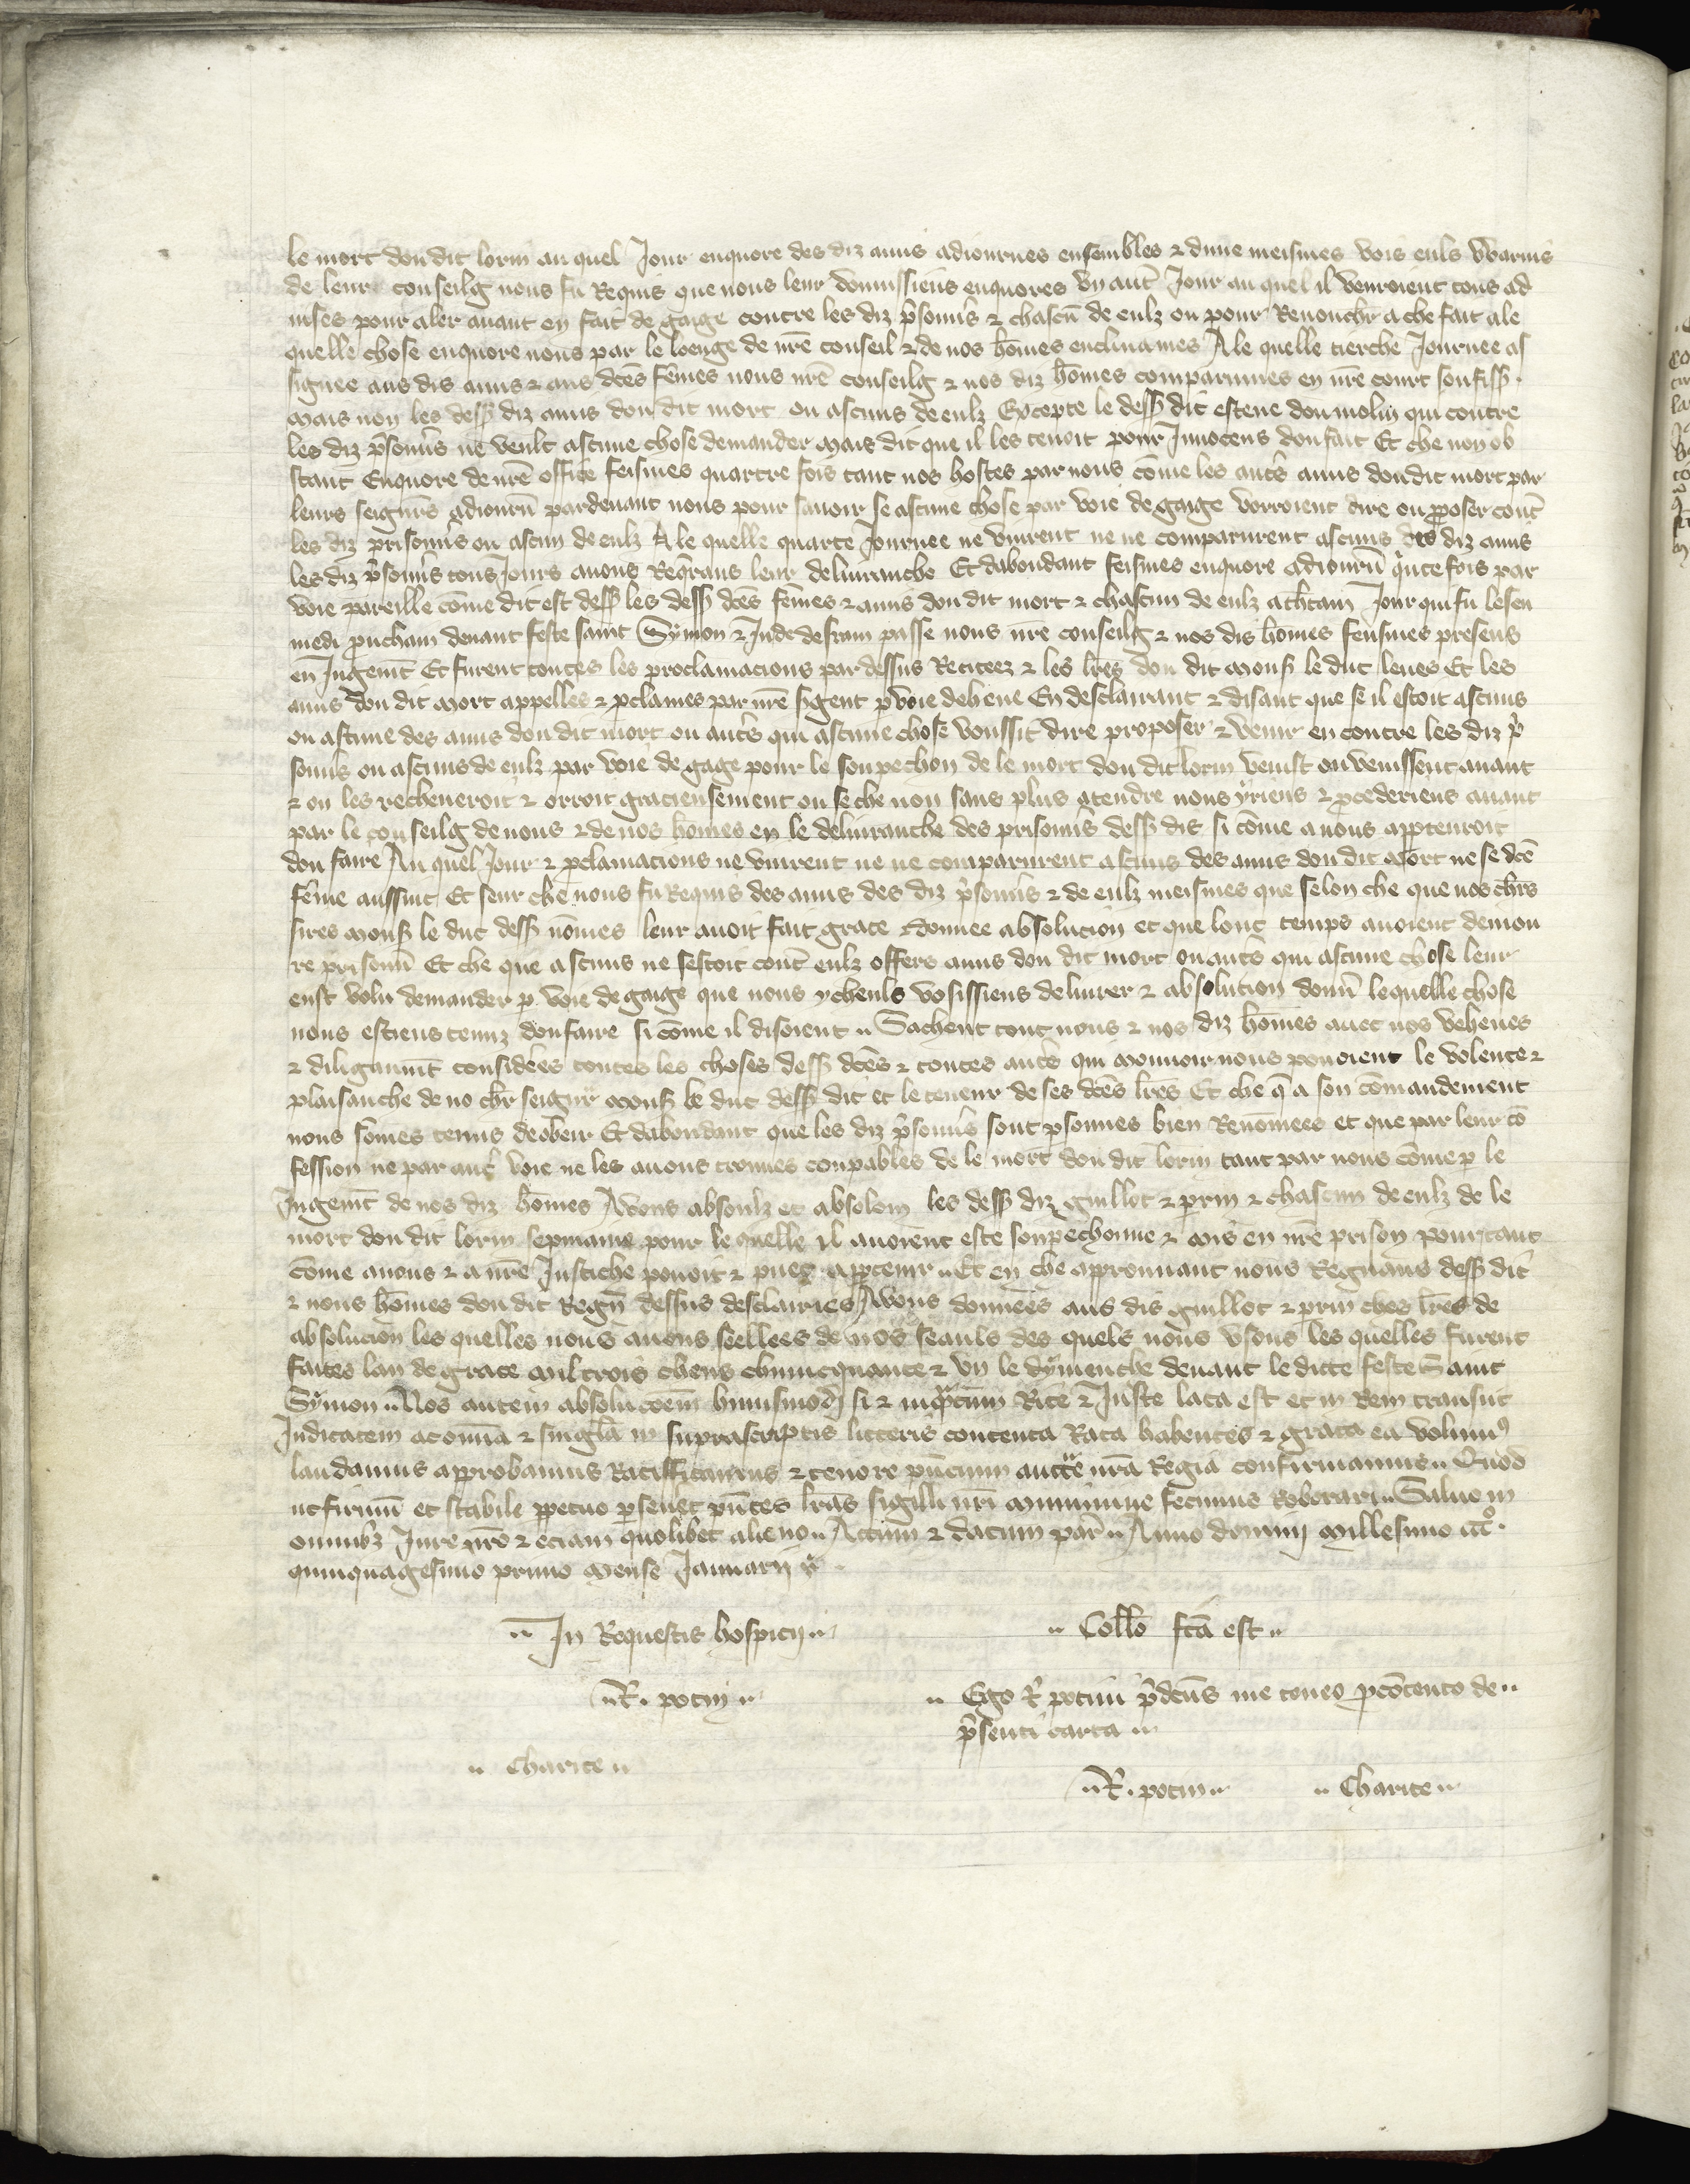 le mort dou dit lorin au quel Jour enquore des diz amis adiournes ensembles ⁊ dune meismes vois euls
de leur conseilg nous fu Requis que nous leur donnissiens enquores vn aut̄ Jour au quel il venroient tous ad
uises pour aler auant en fait de gaige contre les diz p̄sonn̄s ⁊ chascū de eulz ou pour Renonchr̄ a che fait ale
quelle chose enquore nous par le loenge de nr̄e conseil ⁊ de nos hōmes enclinames A le quelle tierche Journee as
signee aus dis amis ⁊ aus dc̄es fēmes nous nr̄e conseilg ⁊ nos diz hōmes comparumes en nr̄e court souffiss̄.
mais non les dess̄ diz amis dou dit mort ou ascuns de eulz Excepte le dess̄ dit esteue dou molin qui contre
les diz p̄sonn̄s ne veult ascune chose demander mais dit que il les tenoit pour Innocens dou fait Et che non ob
stant Enquore de nr̄e office feismes quartre fois tant nos hostes par nous cōme les aut̄s amis dou dit mort par
leurs seign̄rs adiourn̄ pardeuant nous pour sauoir se ascune chose par voie de gaige vorroient dire ou ꝓposer cont̄
les diz prisonn̄s ou ascun de eulz A le quelle quarte Journee ne vinrent ne ne comparurent ascuns des diz amis
les diz p̄sonn̄s tous Jours auons Req̄rans leur deliuranche Et dabondant feismes enquore adiourn̄ q̄nte fois par
voie pareille cōme dit est dess̄ les dess̄ dc̄es fēmes ⁊ amis dou dit mort ⁊ chascun de eulz a ch̄tain Jour qui fu le sen
medi ꝓucham deuant feste saint Symon ⁊ Jude passe nous nr̄e conseilg ⁊ nos dis hōmes feusmes presens
en Jugem̄t Et furent toutes les proclamacions par dessus Reciteez ⁊ les lr̄es dou dit mons̄ le duc leues Et les
amis dou dit mort appelles ⁊ ꝓclames par nr̄e s̄gent p̄ voie dehene En desclairant ⁊ disant que se il estoit ascuns
ou ascune des amis dou dit mort ou aut̄s qui ascune chose voussit̄ dire proposer ⁊ venir en contre les diz p̄
sonn̄s ou ascuns de eulz par voie de gage pour le soupechon de le mort dou dit lorin venist ou venissent auant
⁊ on les recheueroit ⁊ orroit gracieusement ou se che non sans plus atendre nous yriens ⁊ ꝓcederiens auant
par le conseilg de nous ⁊ de nos hōmes en le deliuranche des prisonn̄s dess̄ dis si cōme a nous apꝑtenroit
dou faire Au quel Jour ⁊ ꝓclamacions ne vinrent ne ne comparurent ascuns des amis dou dit mort ne se dc̄e
fēme aussint Et seur che nous fu Requis des amis des diz p̄sonn̄s ⁊ de eulz meismes que selon che que nos ch̄rs
sires mons̄ le duc dess̄ nōmes leur auoit fait grace ⁊ donnee absolucion et que lonc temps auoient demou
re prisonn̄ Et che que ascuns ne sestoit cont̄ eulz offers amis dou dit mort ou aut̄s qui ascune chose leur
eust volu demander ꝑ voie de gaige que nous ycheuls vosissiens deliurer ⁊ absolucion donn̄ lequelle chose
nous estiens tenuz dou faire si cōme il disoient .. Sachent tout nous ⁊ nos diz hōmes auec nos vehenes
⁊ diligaum̄t consid̄ees toutes les choses dess̄ dc̄es ⁊ toutes aut̄s qui mouuoir nous pouoient le volente ⁊
plaisanche de no ch̄r seign̄r mons̄ le duc dess̄ dit et le teneur de ses dc̄es lr̄es Et che q̄ a son cōmandement
nous sōmes tenus de obeir Et dabondant que les diz p̄sonn̄s sont ꝑsonnes bien Renōmees et que par leur cō
fession ne par aut̄ voie ne les auons trouues coupables de le mort dou dit lorin tant par nous cōme ꝑ le
Jugem̄t de nos diz hōmes Auons absoulz et absolom les dess̄ diz guillot ⁊ prin ⁊ chascun de eulz de le
mort dou dit lorin sepmaine pour le quelle il auoient este soupechonne ⁊ mis en nr̄e prison pour tant
cōme auous ⁊ a nr̄e Justiche pouoit ⁊ puet apꝑtenir .. Et en che approuuant nous Regnaus dess̄ dit
⁊ nous hōmes dou dit Regn̄ dessus desclairies Auons donnees aus dis guillot ⁊ prin ches lr̄es de
absolucion les quelles nous auons seellees de nos seauls des quels nous vsons les quelles furent
faites lan de grace mil trois chens chinicquante ⁊ vn le dymenche deuant le dicte feste Saint
Symon .. Nos autem absolucōem huiusmodj si ⁊ inq̄ntum Rite ⁊ Juste lata est et in Rem transiit
Judicatam ac om̄ia ⁊ singl̄a in suprascriptis litteris contenta Rata habentes ⁊ grata ea volumꝰ
laudamus approbamus Ratifficamus ⁊ tenore p̄ncium auctᵗᵉ nr̄a Regia confirmamus .. Quod
ut firmū et stabile ꝑpetuo perseu̅et p̄ntes lr̄as sigilli nr̄i munimine fecimus Roborari .. Saluo in
omnibꝫ Jure nr̄o ⁊ eciam quolibet alieno .. Actum ⁊ datum par̄ .. Anno domini millesimo cccº.
quinquagesimo primo mense Januarij
.. In Requestis hospicij ..
.. Coll̄o fc̄a est ..
.. R̄. potin ..
.. Ego R̄ potin p̄dc̄us me teneo ꝓ cōtento de ..
p̄senti carta ..
.. Charite ..
.. R̄. potin .. .. Charite ..